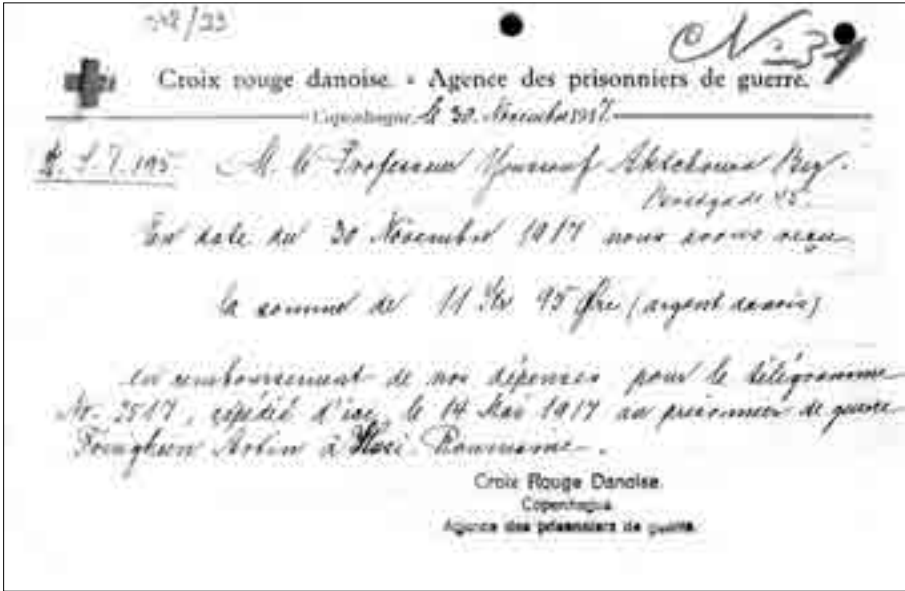 Nº 34
Croix rouge danoise. - Agence des prisonniers de guerre.
Copenhague, le 30. Novembre 1917.
M. le Professeur Youssouf Aktchoura Bey.
En date du 30 Novembre 1917 nous avons reçu
la somme de 11 Kr 95 Øre (argent danois)
en remboursement de nos dépenses pour le télégramme
No. 3517, expédié d'ici, le 14 Mai 1917 au prisonnier de guerre
à Roumaine.
Croix Rouge Danoise.
Copenhague
Agence des prisonniers de guerre.